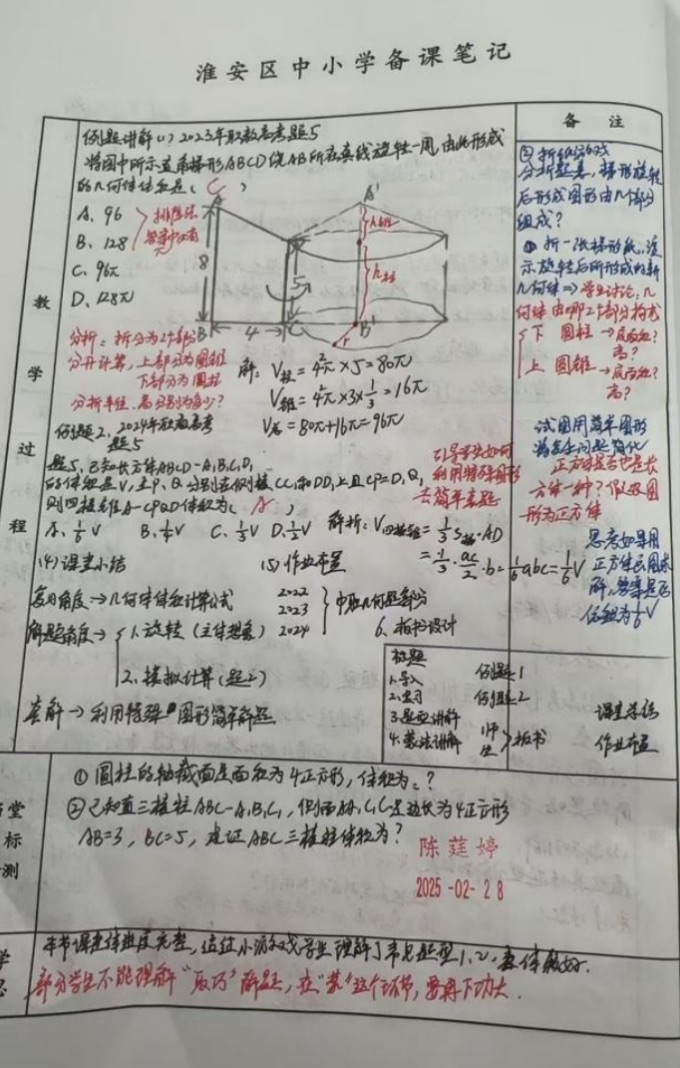 淮安区中小学备课笔记
备 注
教
学
过
程
例题讲解(1) 2023年职教高考题5
将图中所示直角梯形ABCD绕AB所在直线旋转一周,由此形成
的几何体体积是( C )
A、96
B、128
C、96π
D、128π
排除法
A
B
C
8
4
5
A'
B'
r
分析:拆分为2个部分
分开计算,上部分为圆锥
下部分为圆柱
分析半径、高分别为多少?
解:V柱=4²π×5=80π
V锥=4²π×3×1/3=16π
V总=80π+16π=96π
例题2、2024年职教高考
题5
题5、已知长方体ABCD-A₁B₁C₁D₁
的体积是V,若P、Q分别在侧棱CC₁和DD₁上且CP=D₁Q,
则四棱锥A-CPQD体积为( A )
A、1/6V B、1/4V C、1/3V D、1/2V
引导学生如何
利用特殊图形
去简单套题
解析:V四棱锥=1/3S梯·AD
=1/3·ac/2·b=1/6abc=1/6V
(4)课堂小结 (5)作业布置
复习角度→几何体体积计算公式
2022
2023
2024
解题角度→1、旋转(立体想象)
2、模拟计算(题2)
套解→利用特殊图形简单解题
6、板书设计
标题
1.导入
2.复习
3.题型讲解
4.套法讲解
例题1
例题2
师
生
板书
课堂总结
作业布置
② 折纸游戏
分析题意,梯形旋转
后形成图形由几个部分
组成?
① 折一张梯形纸,演
示旋转后所形成的新
几何体⇒学生讨论,几
何体由哪2个部分构成
下 圆柱→底面积?
高?
上 圆锥→底面积?
高?
试图用简单图形
将复杂问题简化
正方体是否也是长
方体一种?假设图
形为正方体
思考如果用
正方体去图求
解,答案是否
仍然为1/6V
堂
标
测
①圆柱的轴截面是面积为4正方形,体积为:?
②已知直三棱柱ABC-A₁B₁C₁,侧面AA₁C₁C是边长为4正方形
AB=3,BC=5,求证ABC三棱柱体积为?
陈莛婷
2025-02-28
学
思
本节课整体进度完整,通过小游戏学生理解了常见题型1、2,整体较好.
部分学生不能理解“取巧”解题,在“套”这个环节,要再下功夫.